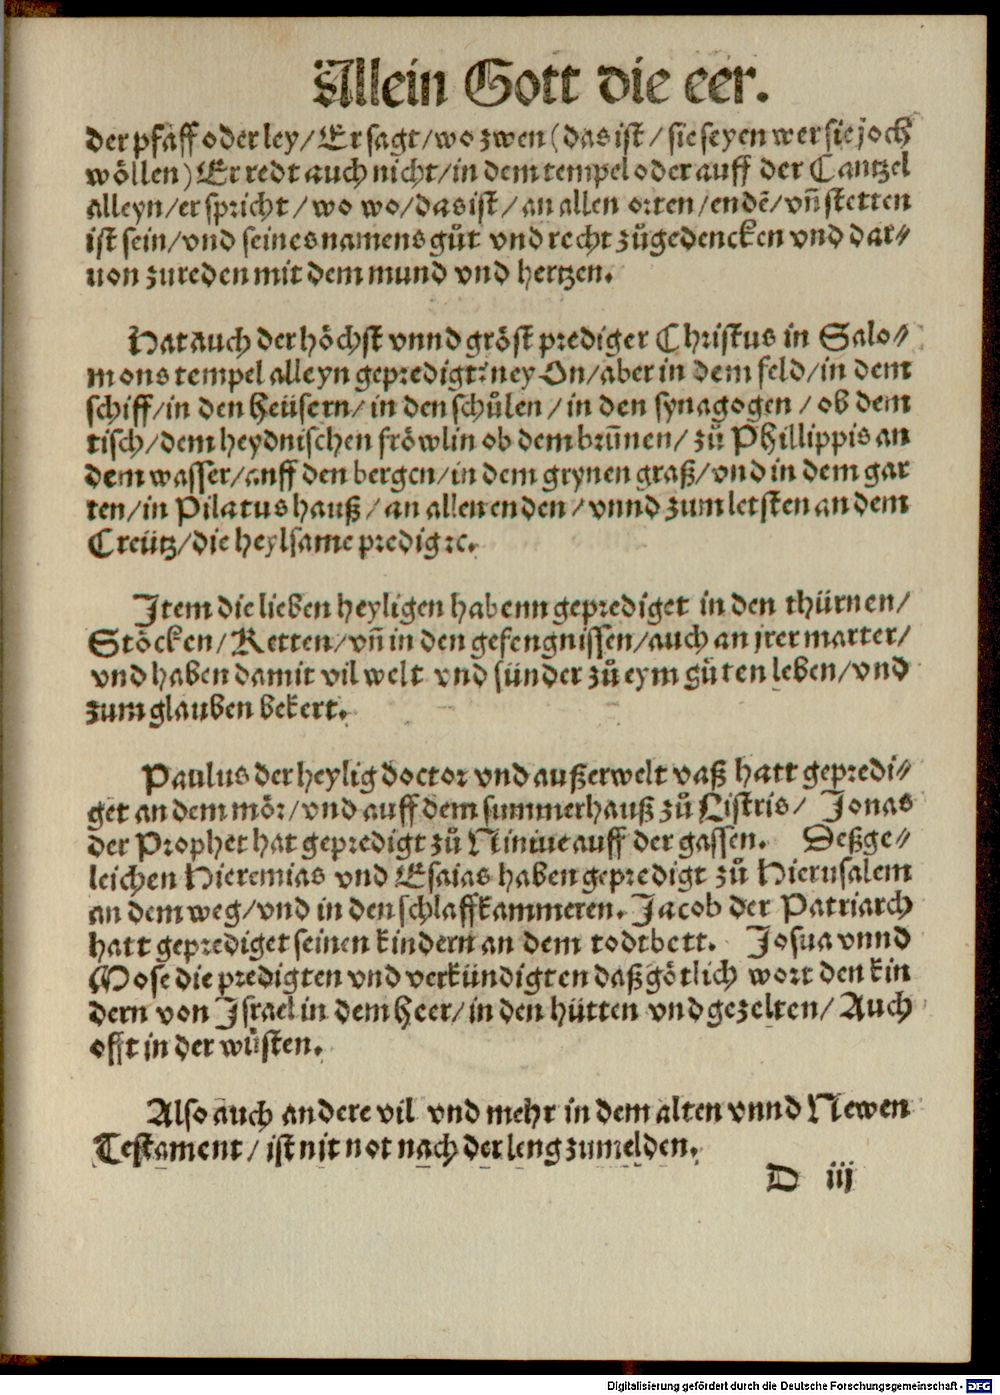 Allein Gott die eer.
der pfaff oder ley/Er sagt/wo zwen (das ist/ sie seyen wer sie joch
wöllen) Er redt auch nicht/in dem tempel oder auff der Cantzel
alleyn/er spricht/wo wo/das ist/an allen orten/endē/vñ stetten
ist sein/vnd seines namens gůt vnd recht zůgedencken vnd dar⸗
uon zureden mit dem mund vnd hertzen.
Hat auch der höchst vnnd gröst prediger Christus in Salo⸗
mons tempel alleyn gepredigt: neyOn/aber in dem feld/in dem
schiff/in den heüsern/in den schůlen/in den synagogen/ob dem
tisch/dem heydnischen fröwlin ob dem brun̄nen/zů Phillippis an
dem wasser/auff den bergen/in dem grynen graß/vnd in dem gar
ten/in Pilatus hauß/an allen enden/vnnd zum letsten an dem
Creütz/die heylsame predig ꝛc.
Item die lieben heyligen habenn geprediget in den thürnen/
Stöcken/Ketten/vñ in den gefengnissen/auch an jrer marter/
vnd haben damit vil welt vnd sünder zů eym gůten leben/vnd
zum glauben bekert.
Paulus der heylig doctor vnd außerwelt vaß hatt gepredi⸗
get an dem mör/vnd auff dem summerhauß zů Listris/ Jonas
der Prophet hat gepredigt zů Niniue auff der gassen. Deßge⸗
leichen Hieremias vnd Esaias haben gepredigt zů Hierusalem
an dem weg/vnd in den schlaffkammeren. Jacob der Patriarch
hatt geprediget seinen kindern an dem todtbett. Josua vnnd
Mose die predigten vnd verkündigten daß götlich wort den kin
dern von Israel in dem Heer/in den hütten vnd gezelten/Auch
offt in der wůsten.
Also auch andere vil vnd mehr in dem alten vnnd Newen
Testament/ist nit not nach der leng zumelden.
D iij
Digitalisierung gefördert durch die Deutsche Forschungsgemeinschaft - DFG